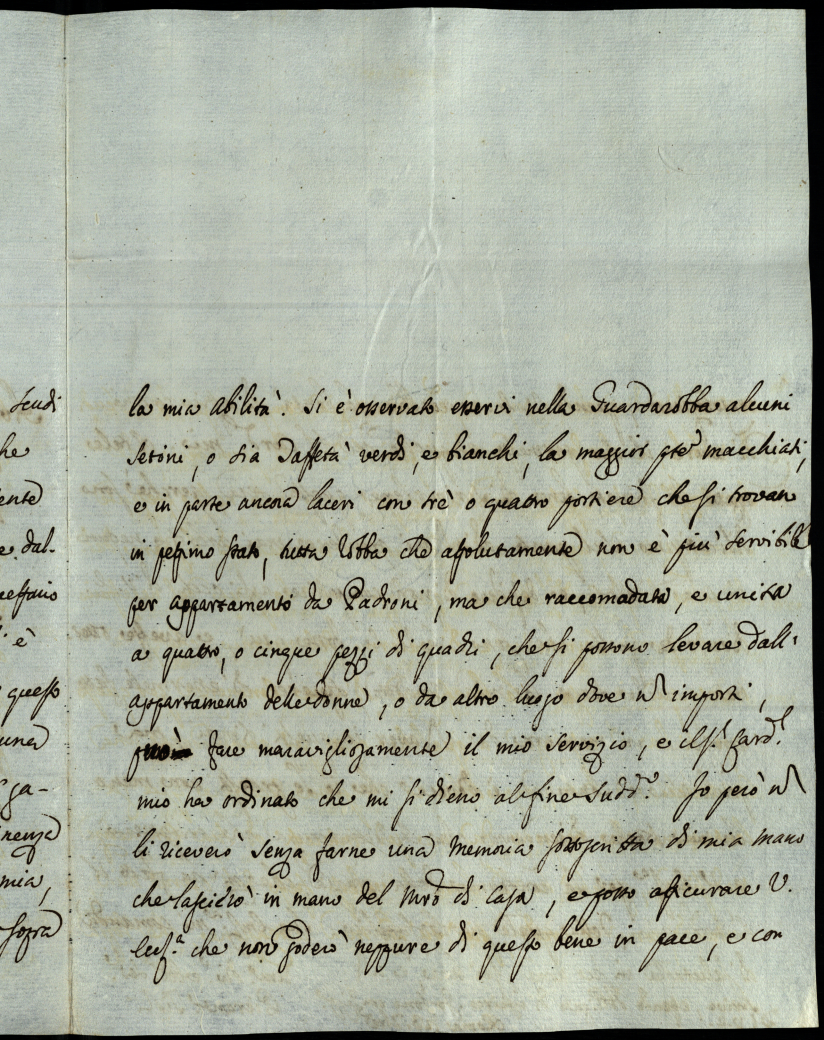 la mia abilità. Si è osservato esservi nella Guardarobba alcuni
setini, o sia Taffetà verdi, e bianchi, la maggior pte macchiati,
e in parte ancora laceri con trè o quattro portiere che si trovan
in pessimo stato, tutta robba che assolutamente non è più servibile
per appartamento da Padroni, ma che raccomodata, e unita
a quattro, o cinque pezzi di quadri, che si possono levare dall'
appartamento delle donne, o da altro luogo dove n importi,
può fare maravigliosamente il mio servizio, e il Sr Card.l
mio ha ordinato che mi si dieno al fine sudd.o Io però n
li riceverò senza farne una memoria sottoscritta di mia mano
che lascierò in mano del Mrõ di Casa, e posso assicurare V.
Ecc.a che non goderò neppure di questo bene in pace, e con
scudi
he
ente
e dal-
essario
i è
questo
una
ga-
nenza
mia,
sopra